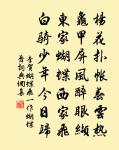 楊花撲帳春雲熱
龜甲屏風醉眼纈
東家蝴蝶西家飛
白騎少年今日歸
李賀蝴蝶飛一作蝴蝶
舞詞典網集